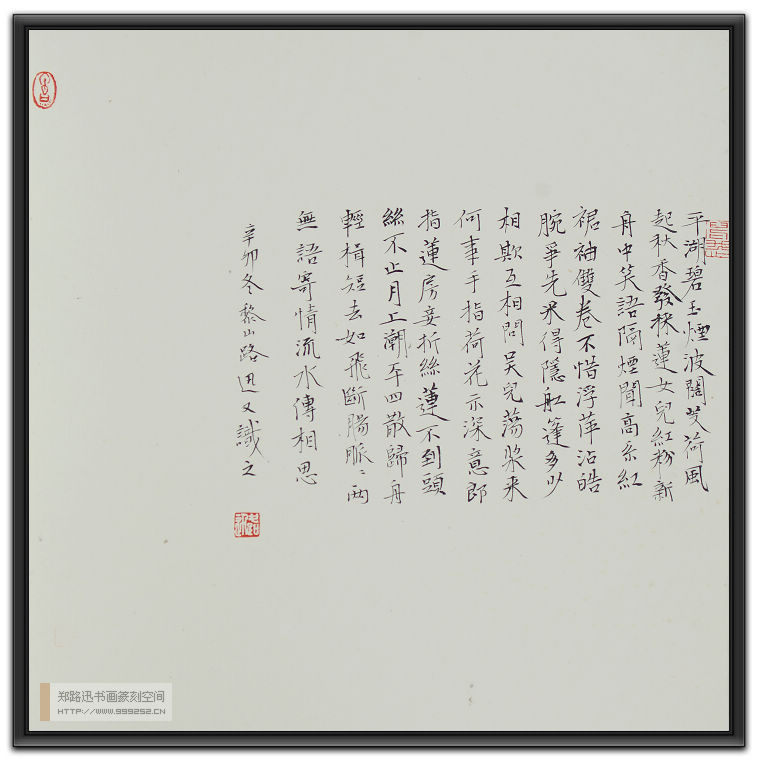 平湖碧玉煙波闊芰荷風
起秋香發採蓮女兒紅粉新
舟中笑語隔煙聞高系紅
裙袖雙卷不惜浮萍沾皓
腕爭先采得隱舡篷多少
相欺互相問吳兒蕩槳来
何事手指荷花示深意郎
指蓮房妾折絲蓮不到頭
絲不止月上潮平四散歸舟
輕楫短去如飛斷腸脈〻兩
無語寄情流水傳相思
辛卯冬黎山路迅又識之
郑路迅书画篆刻空间
HTTP://WWW.999252.CN